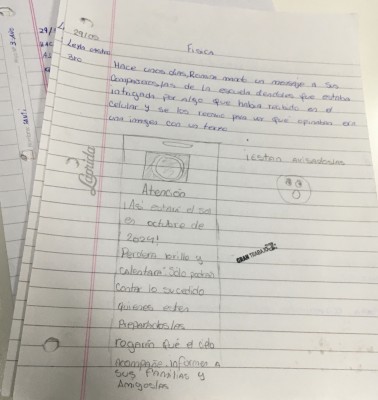 29/05
Física
3ro
Hace unos días, Romina mandó un mensaje a sus
compañeros/as de la escuela diciendo que estaba
intrigada por algo que había recibido en el
celular y se los reenvió para ver que opinaban era
una imagen con un texto
¡están avisados/as
Atención
¡Así estará el sol
en octubre de
2024!
Perderá brillo y
calentará. Solo podrán
contar lo sucedido
quienes estén
Preparados/as
rogarán que el cielo
acompañe, informen a
sus familias y
Amigos/as
GRAN TRABAJO
Laprida